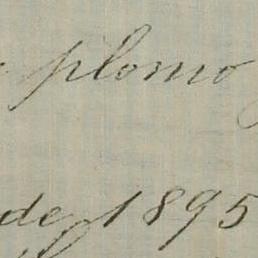 plomo
de 1895